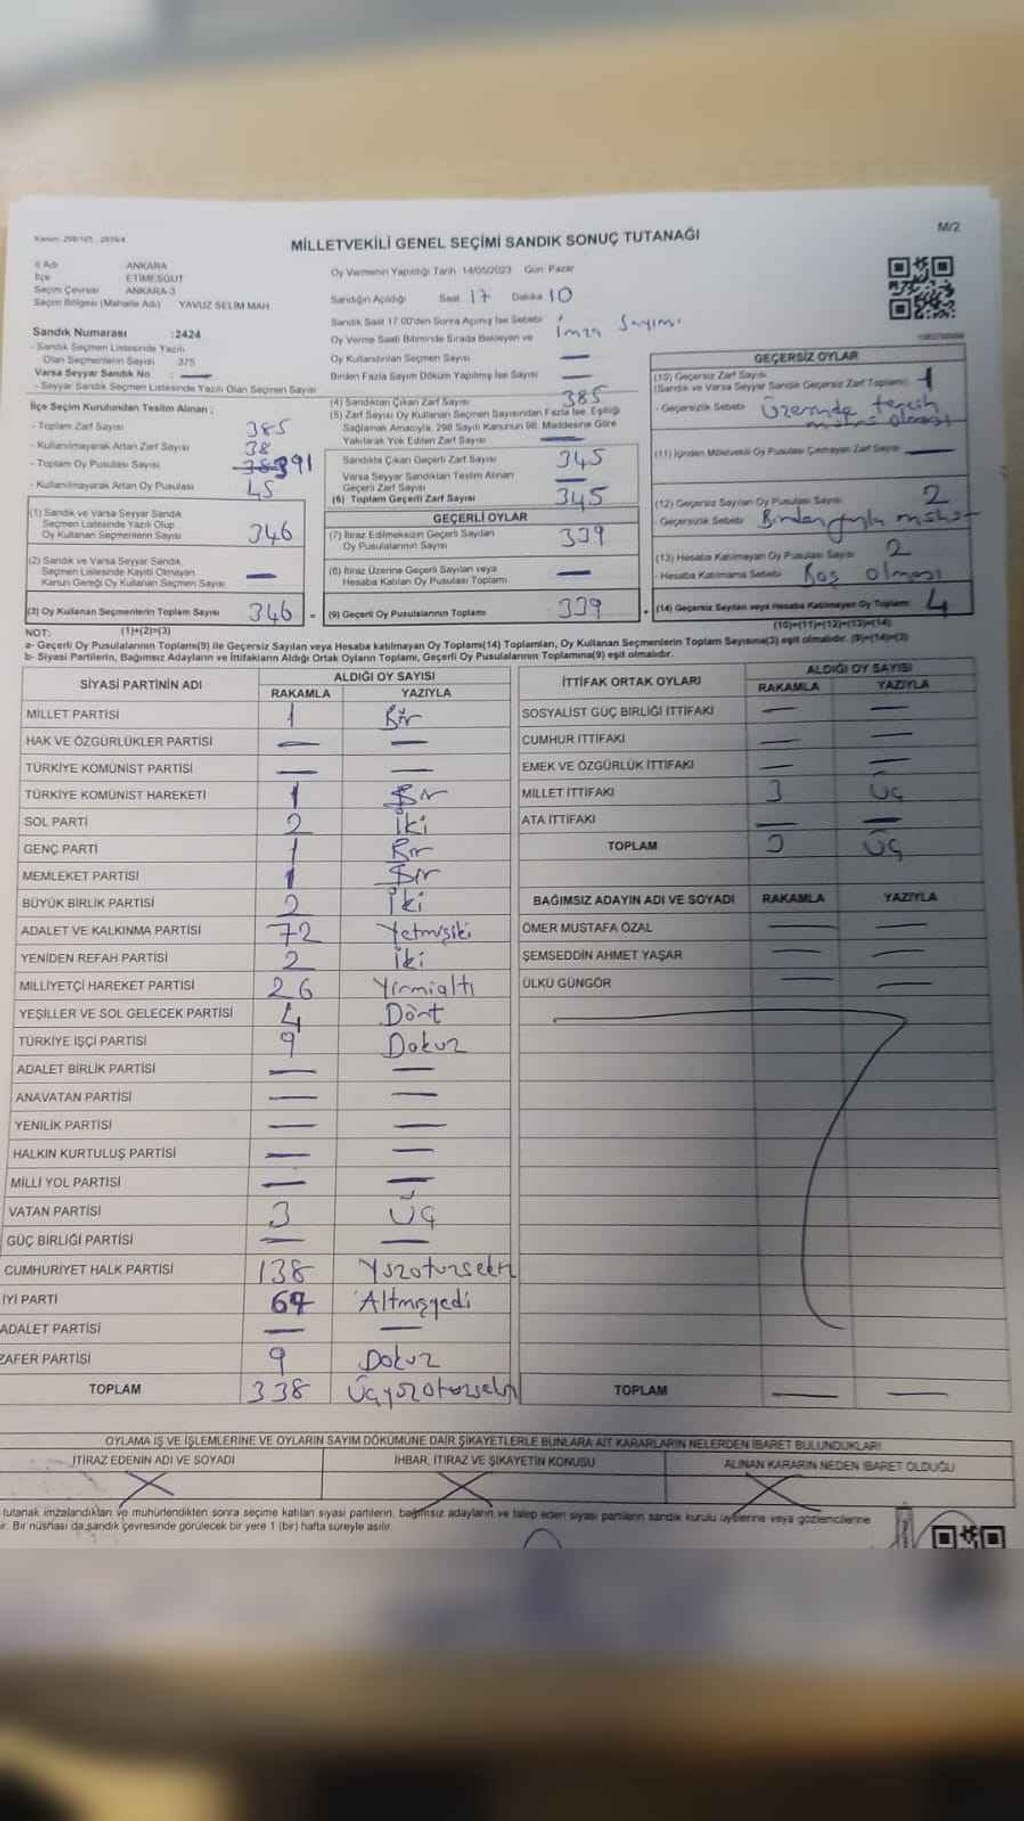 Kanun: 298/105
M/2
MİLLETVEKİLİ GENEL SEÇİMİ SANDIK SONUÇ TUTANAĞI
İl Adı ANKARA
İlçe ETİMESGUT
Seçim Çevresi ANKARA-3
Seçim Bölgesi (Mahalle Adı) YAVUZ SELİM MAH.
Sandık Numarası :2424
- Sandık Seçmen Listesinde Yazılı
Olan Seçmenlerin Sayısı 375
Varsa Seyyar Sandık No : —
- Seyyar Sandık Seçmen Listesinde Yazılı Olan Seçmen Sayısı
Oy Vermenin Yapıldığı Tarih 14/05/2023 Gün: Pazar
Sandığın Açıldığı Saat 17 Dakika 10
Sandık Saat 17.00'den Sonra Açılmış İse Sebebi İmza Sayımı
Oy Verme Saati Bitiminde Sırada Bekleyen ve
Oy Kullandırılan Seçmen Sayısı —
Birden Fazla Sayım Döküm Yapılmış İse Sayısı —
İlçe Seçim Kurulundan Teslim Alınan :
- Toplam Zarf Sayısı 385
- Kullanılmayarak Artan Zarf Sayısı 38
- Toplam Oy Pusulası Sayısı 391
- Kullanılmayarak Artan Oy Pusulası 45
(1) Sandık ve Varsa Seyyar Sandık
Seçmen Listesinde Yazılı Olup
Oy Kullanan Seçmenlerin Sayısı 346
(2) Sandık ve Varsa Seyyar Sandık
Seçmen Listesinde Kayıtlı Olmayan
Kanun Gereği Oy Kullanan Seçmen Sayısı —
(3) Oy Kullanan Seçmenlerin Toplam Sayısı 346 =
(1)+(2)=(3)
(4) Sandıktan Çıkan Zarf Sayısı 385
(5) Zarf Sayısı Oy Kullanan Seçmen Sayısından Fazla İse, Eşitliği
Sağlamak Amacıyla, 298 Sayılı Kanunun 98. Maddesine Göre
Yakılarak Yok Edilen Zarf Sayısı —
Sandıkta Çıkan Geçerli Zarf Sayısı 345
Varsa Seyyar Sandıktan Teslim Alınan
Geçerli Zarf Sayısı —
(6) Toplam Geçerli Zarf Sayısı 345
GEÇERLİ OYLAR
(7) İtiraz Edilmeksizin Geçerli Sayılan
Oy Pusulalarının Sayısı 339
(8) İtiraz Üzerine Geçerli Sayılan veya
Hesaba Katılan Oy Pusulası Toplamı —
(9) Geçerli Oy Pusulalarının Toplamı 339 +
GEÇERSİZ OYLAR
(10) Geçersiz Zarf Sayısı
(Sandık ve Varsa Seyyar Sandık Geçersiz Zarf Toplamı) 1
- Geçersizlik Sebebi Üzerinde tercih
mührü olması
(11) İçinden Milletvekili Oy Pusulası Çıkmayan Zarf Sayısı —
(12) Geçersiz Sayılan Oy Pusulası Sayısı 2
Geçersizlik Sebebi Birden fazla mühür
(13) Hesaba Katılmayan Oy Pusulası Sayısı 2
- Hesaba Katılmama Sebebi Boş olması
(14) Geçersiz Sayılan veya Hesaba Katılmayan Oy Toplamı 4
(10)+(11)+(12)+(13)=(14)
NOT:
a- Geçerli Oy Pusulalarının Toplamı(9) ile Geçersiz Sayılan veya Hesaba katılmayan Oy Toplamı(14) Toplamları, Oy Kullanan Seçmenlerin Toplam Sayısına(3) eşit olmalıdır. (9)+(14)=(3)
b- Siyasi Partilerin, Bağımsız Adayların ve İttifakların Aldığı Ortak Oyların Toplamı, Geçerli Oy Pusulalarının Toplamına(9) eşit olmalıdır.
SİYASİ PARTİNİN ADI ALDIĞI OY SAYISI
RAKAMLA YAZIYLA
MİLLET PARTİSİ 1 Bir
HAK VE ÖZGÜRLÜKLER PARTİSİ — —
TÜRKİYE KOMÜNİST PARTİSİ — —
TÜRKİYE KOMÜNİST HAREKETİ 1 Bir
SOL PARTİ 2 İki
GENÇ PARTİ 1 Bir
MEMLEKET PARTİSİ 1 Bir
BÜYÜK BİRLİK PARTİSİ 2 İki
ADALET VE KALKINMA PARTİSİ 72 Yetmişiki
YENİDEN REFAH PARTİSİ 2 İki
MİLLİYETÇİ HAREKET PARTİSİ 26 Yirmialtı
YEŞİLLER VE SOL GELECEK PARTİSİ 4 Dört
TÜRKİYE İŞÇİ PARTİSİ 9 Dokuz
ADALET BİRLİK PARTİSİ — —
ANAVATAN PARTİSİ — —
YENİLİK PARTİSİ — —
HALKIN KURTULUŞ PARTİSİ — —
MİLLİ YOL PARTİSİ — —
VATAN PARTİSİ 3 Üç
GÜÇ BİRLİĞİ PARTİSİ — —
CUMHURİYET HALK PARTİSİ 138 Yüzotuzsekiz
İYİ PARTİ 67 Altmışyedi
ADALET PARTİSİ — —
ZAFER PARTİSİ 9 Dokuz
TOPLAM 338 Üçyüzotuzsekiz
İTTİFAK ORTAK OYLARI ALDIĞI OY SAYISI
RAKAMLA YAZIYLA
SOSYALİST GÜÇ BİRLİĞİ İTTİFAKI — —
CUMHUR İTTİFAKI — —
EMEK VE ÖZGÜRLÜK İTTİFAKI — —
MİLLET İTTİFAKI 3 Üç
ATA İTTİFAKI — —
TOPLAM 3 Üç
BAĞIMSIZ ADAYIN ADI VE SOYADI RAKAMLA YAZIYLA
ÖMER MUSTAFA ÖZAL — —
ŞEMSEDDİN AHMET YAŞAR — —
ÜLKÜ GÜNGÖR — —
TOPLAM — —
OYLAMA İŞ VE İŞLEMLERİNE VE OYLARIN SAYIM DÖKÜMÜNE DAİR ŞİKAYETLERLE BUNLARA AİT KARARLARIN NELERDEN İBARET BULUNDUKLARI
İTİRAZ EDENİN ADI VE SOYADI İHBAR, İTİRAZ VE ŞİKAYETİN KONUSU ALINAN KARARIN NEDEN İBARET OLDUĞU
tutanak imzalandıktan ve mühürlendikten sonra seçime katılan siyasi partilerin, bağımsız adayların ve talep eden siyasi partilerin sandık kurulu üyelerine veya gözlemcilerine
ir. Bir nüshası da sandık çevresinde görülecek bir yere 1 (bir) hafta süreyle asılır.